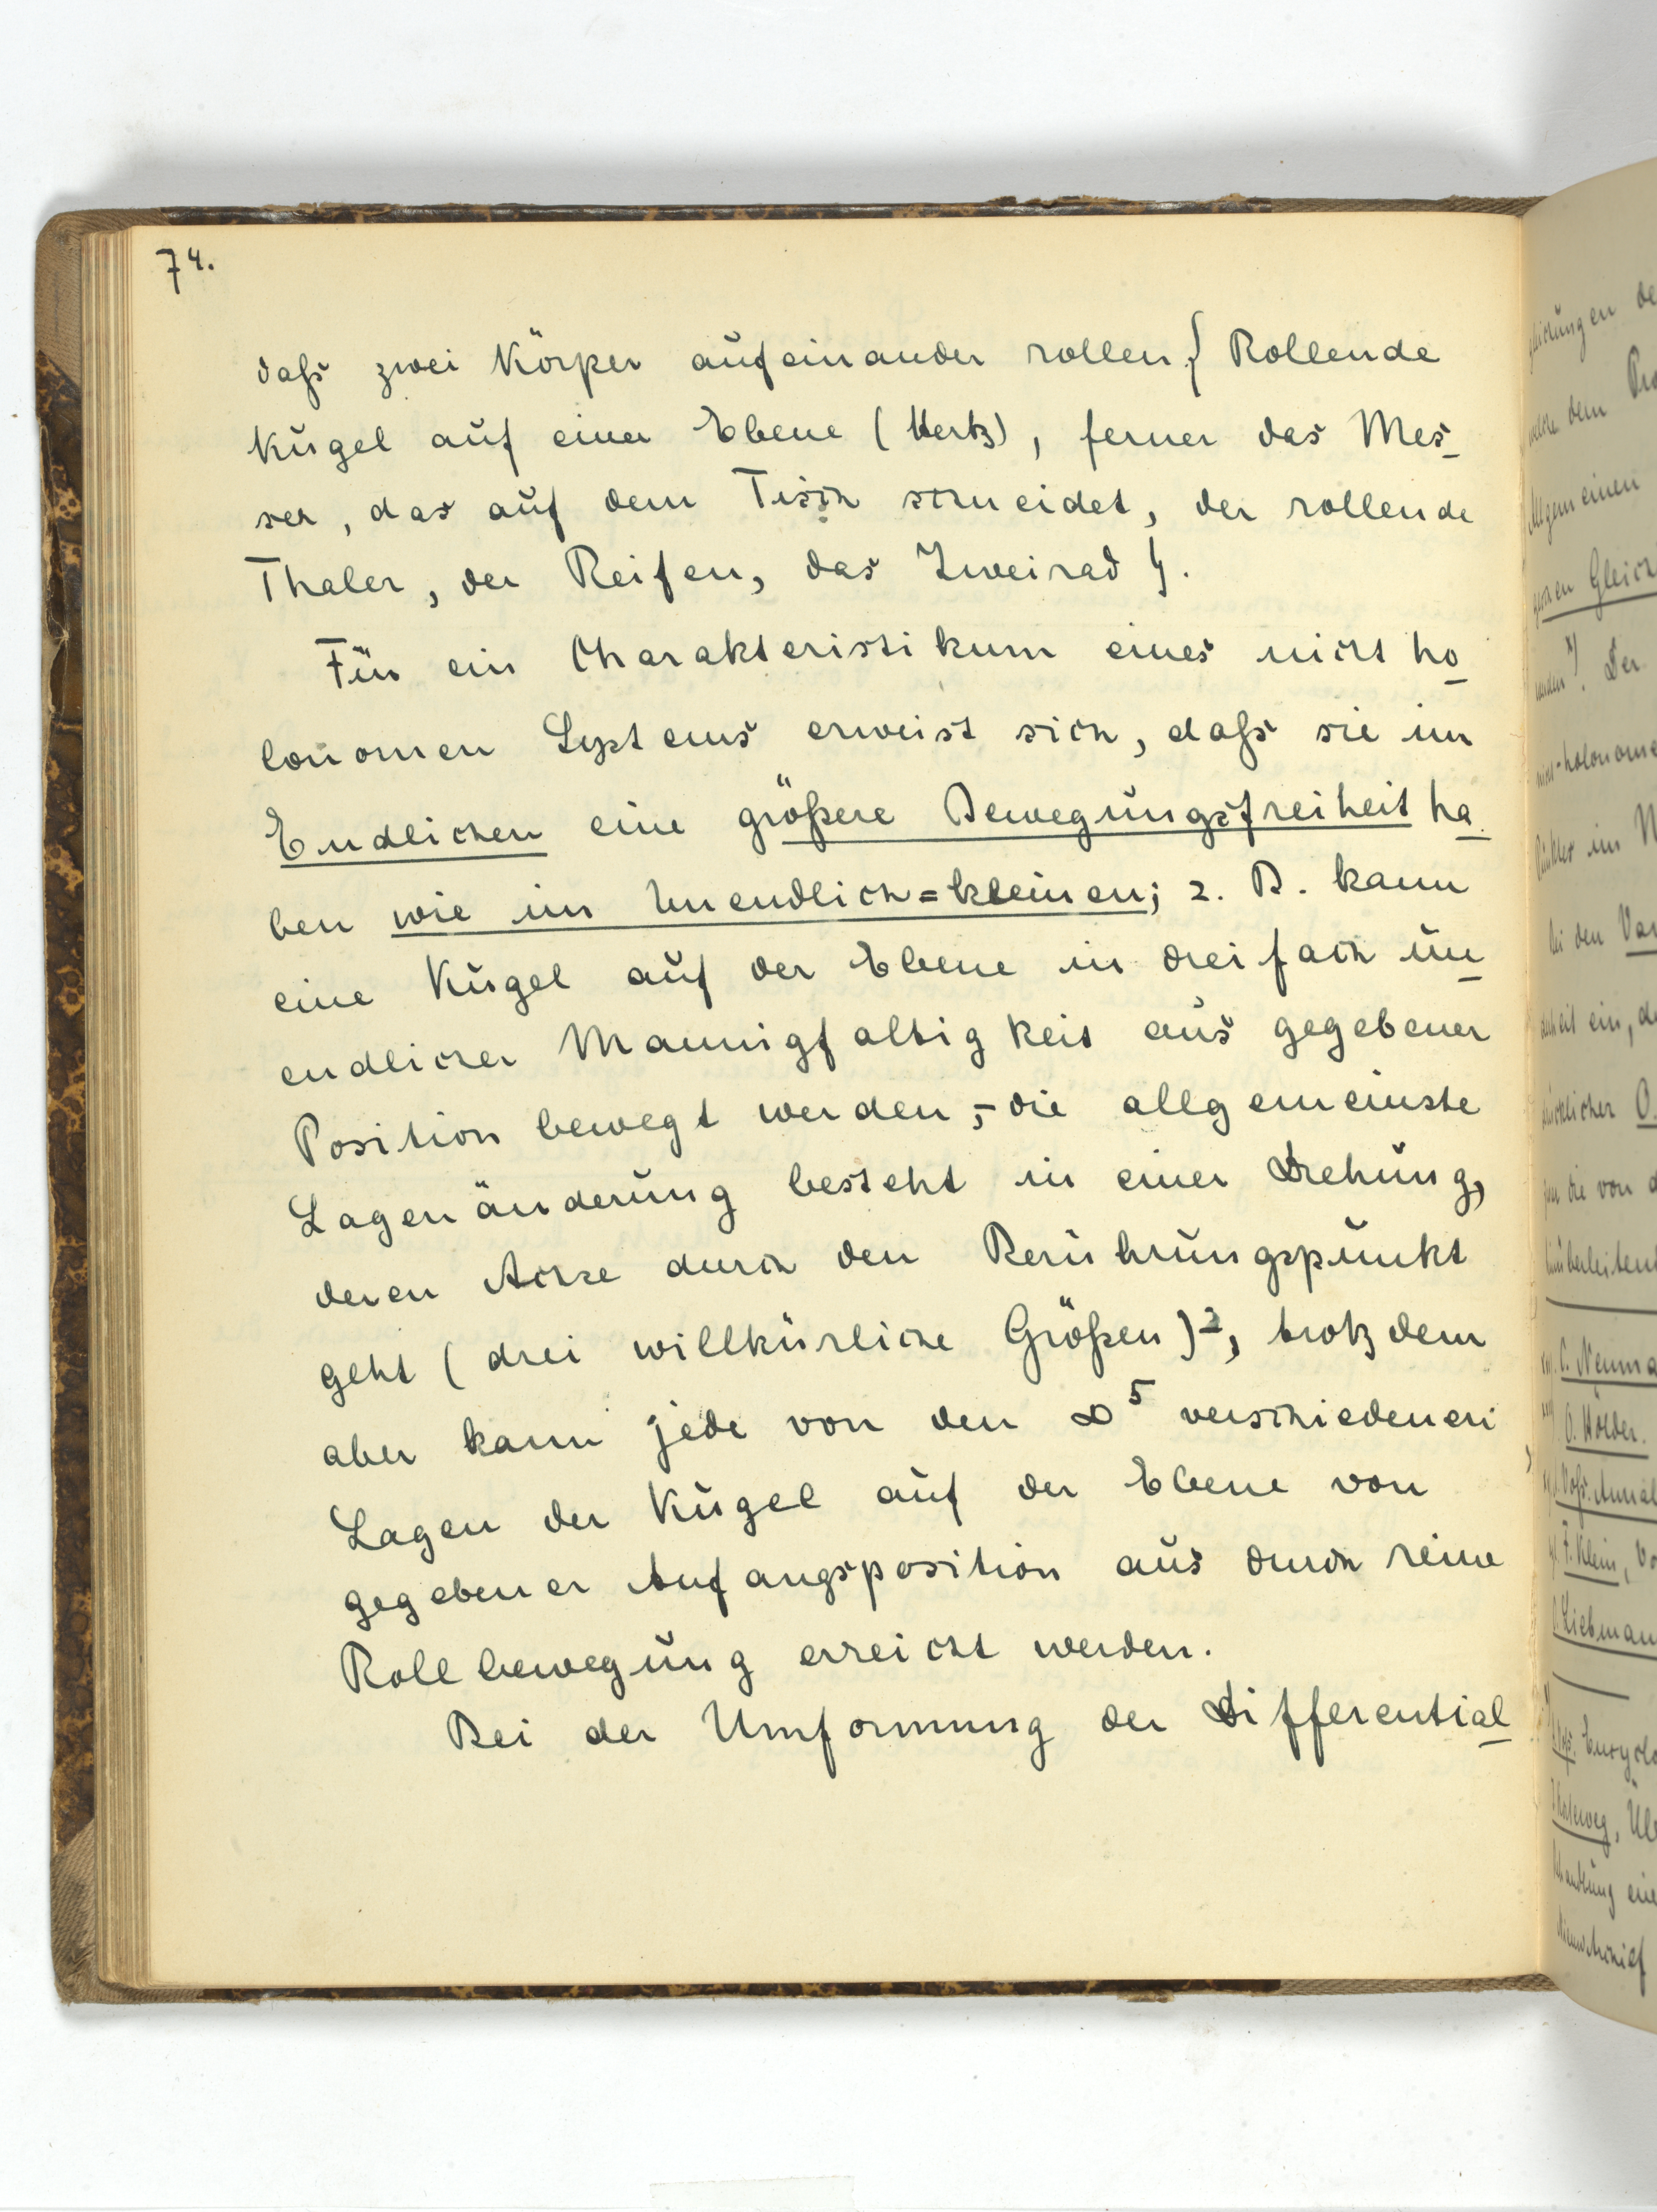 74.
daß zwei Körper aufeinander rollen { Rollende
Kugel auf einer Ebene (Hertz), ferner das Mes-
ser, das auf dem Tisch schneidet, der rollende
Thaler, der Reifen, das Zweirad }.
Für ein Charakteristikum eines nicht ho-
lonomen Systems erweist sich, daß sie im
Endlichen eine größere Bewegungsfreiheit ha-
ben wie im Unendlich=kleinen; z. B. kann
eine Kugel auf der Ebene in dreifach un-
endlicher Mannigfaltigkeit aus gegebener
Position bewegt werden, - die allgemeinste
Lagenänderung besteht in einer Drehung,
deren Achse durch den Berührungspunkt
geht (drei willkürliche Größen), trotzdem
aber kann jede von den ∞⁵ verschiedenen
Lagen der Kugel auf der Ebene von
gegebener Anfangsposition aus durch reine
Rollbewegung erreicht werden.
Bei der Umformung der Differential-
gleichungen de
welche dem
Allgemeinen
Gleich
werden x). Der
nicht-holonome
im
bei den Var
ein, d
O.
die von d
C. Neuma
O. Hölder.
Voß. Annal
F. Klein, Vo
Liebman
Encyclo
, Üb
ein